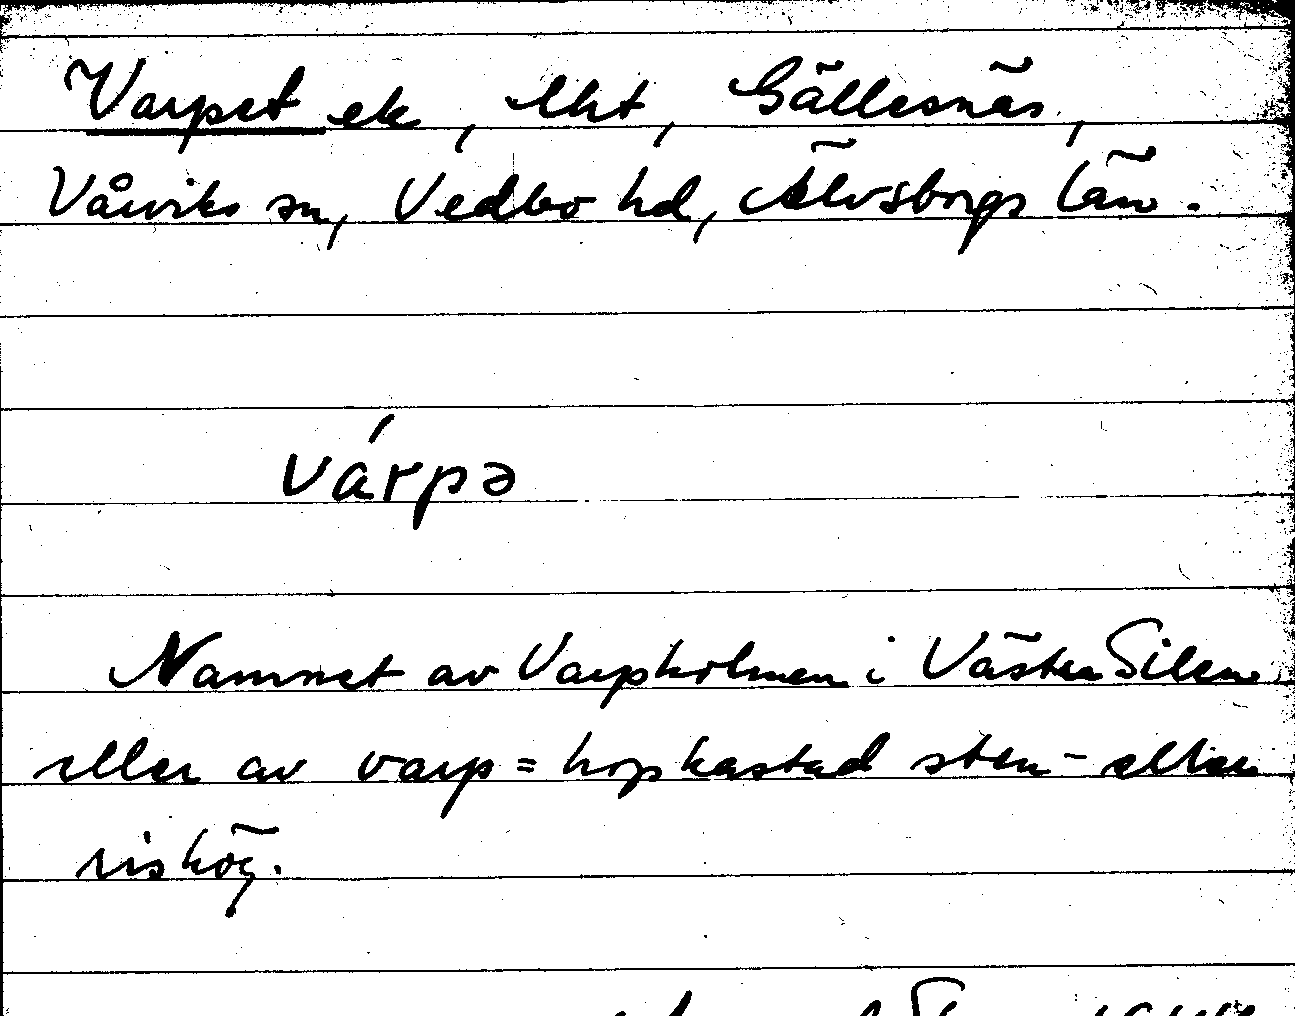 Varpet ek, lht, Gällesnäs,
Vårviks sn, Vedbo hd, Älvsborgs län.
várpə
Namnet av Varpholmen i Västra Silen
eller av varp = hopkastad sten- eller
rishög.